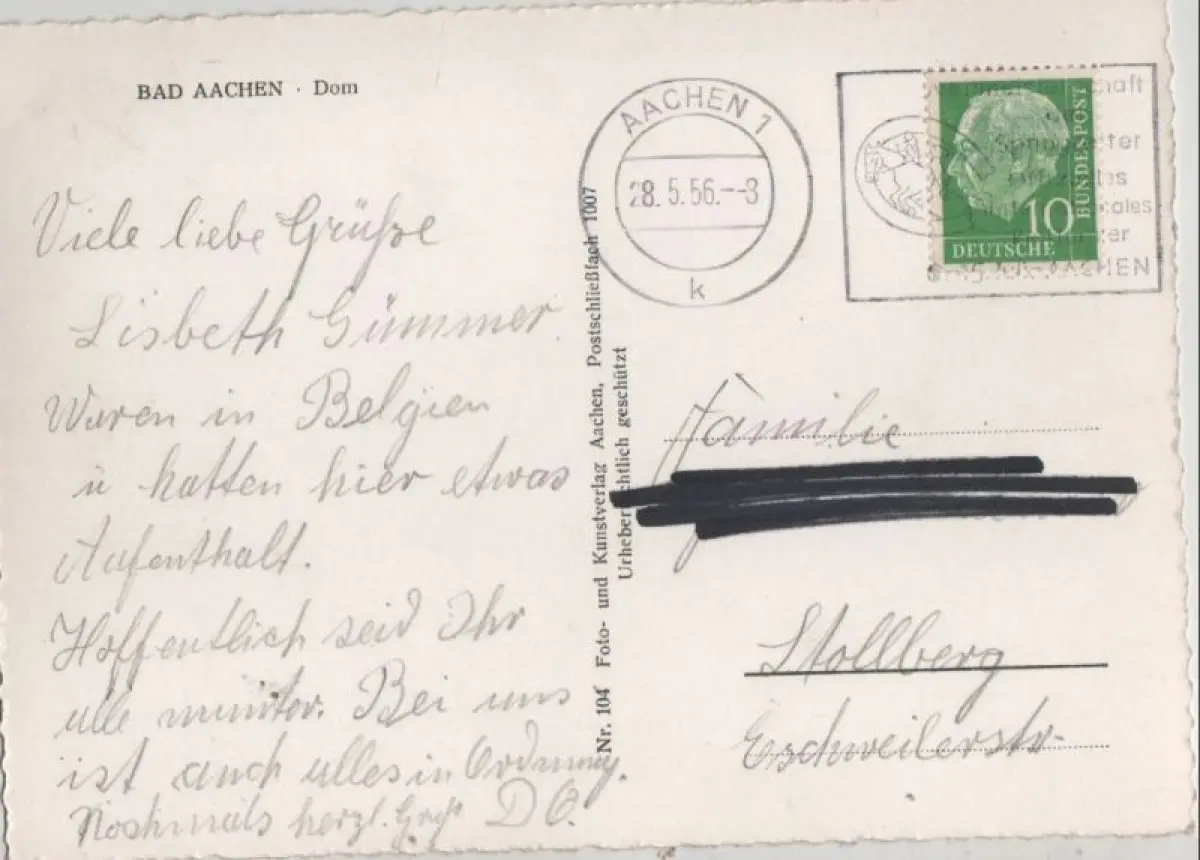 BAD AACHEN · Dom
Viele liebe Grüße
Lisbeth Gümmer.
Waren in Belgien
u hatten hier etwas
Aufenthalt.
Hoffentlich seid Ihr
alle munter. Bei uns
ist auch alles in Ordnung.
Nochmals herzl. Gruß D O.
Nr. 104 Foto- und Kunstverlag Aachen, Postschließfach 1007
Urheberrechtlich geschützt
AACHEN 1
28.5.56.--3
k
AACHEN
10
DEUTSCHE
BUNDESPOST
Familie
Stollberg
Eschweilerstr.